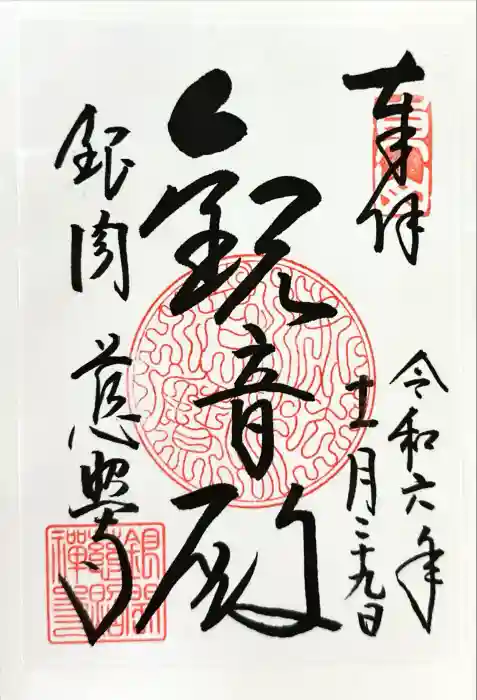 奉拝
令和六年
十一月二十九日
観音殿
銀閣 慈照寺
銀閣
慈照
禪寺